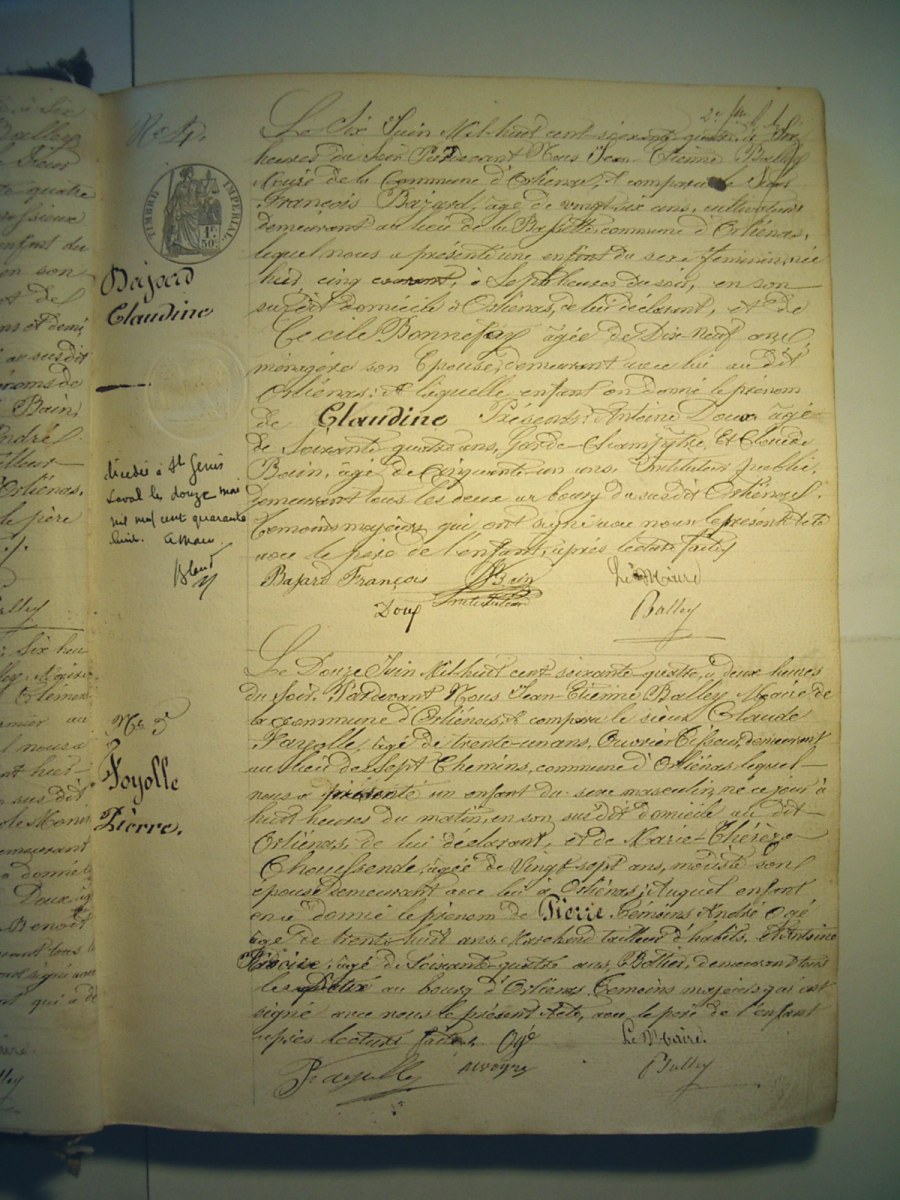 Le Six Juin Mil huit cent soixante quatre à Six
heures du Soir Pardevant Nous Jean Etienne Balley
Maire de la Commune d'Orliénas, a comparu le Sieur
François Bazard, âgé de vingt six ans, cultivateur
demeurant au lieu de la commune d'Orliénas,
lequel nous a présenté une enfant du sexe féminin, née
hier, cinq courant, à Sept heures du soir, en son
susdit domicile d'Orliénas, de lui déclarant, et de
Cécile Bonnefay âgée de Dix-Neuf ans,
ménagère son Epouse, demeurant avec lui au dit
Orliénas; A laquelle enfant on donné le prénom
de Claudine Présents: Antoine Doux agé
de Soixante quatre ans, Garde Champêtre, Et Claude
Boin, âgé de Cinquante un ans, Instituteur public,
demeurant tous les deux au bourg du susdit Orliénas.
Témoins majeurs qui ont signé avec nous le présent Acte
avec le père de l'enfant, après lecture faite
Bajard François Boin Le Maire
Doux Instituteur Balley
No 4.
TIMBRE IMPERIAL
1F 50c
Bajard
Claudine
décédée à St Genis
Laval le douze mai
mil neuf cent quarante
huit.
Le Douze Juin Mil huit cent soixante quatre, à deux heures
du Soir. Pardevant Nous Jean-Etienne Balley Maire de
la Commune d'Orliénas, a comparu le sieur Claude
Fayolle, âgé de trente-un ans, Ouvrier Tisseur, demeurant
au lieu des Sept Chemins, commune d'Orliénas lequel
nous a présenté un enfant du sexe masculin, né ce jour à
huit heures du matin, en son susdit domicile au dit
Orliénas, de lui déclarant, et de Marie-Thérèze
âgée de Vingt-sept ans, modiste son
épouse demeurant avec lui à Orliénas; Auquel enfant
on a donné le prénom de Pierre Témoins André Ogé
âgé de trente huit ans Marchand tailleur d'habits, et Antoine
âgé de Soixante-quatre ans, demeurant tous
les deux au bourg d'Orliénas Témoins majeurs qui ont
signé avec nous le présent Acte, avec le père de l'enfant
après lecture faite Ogé Le Maire
Fayolle Balley
No 5
Fayolle
Pierre.